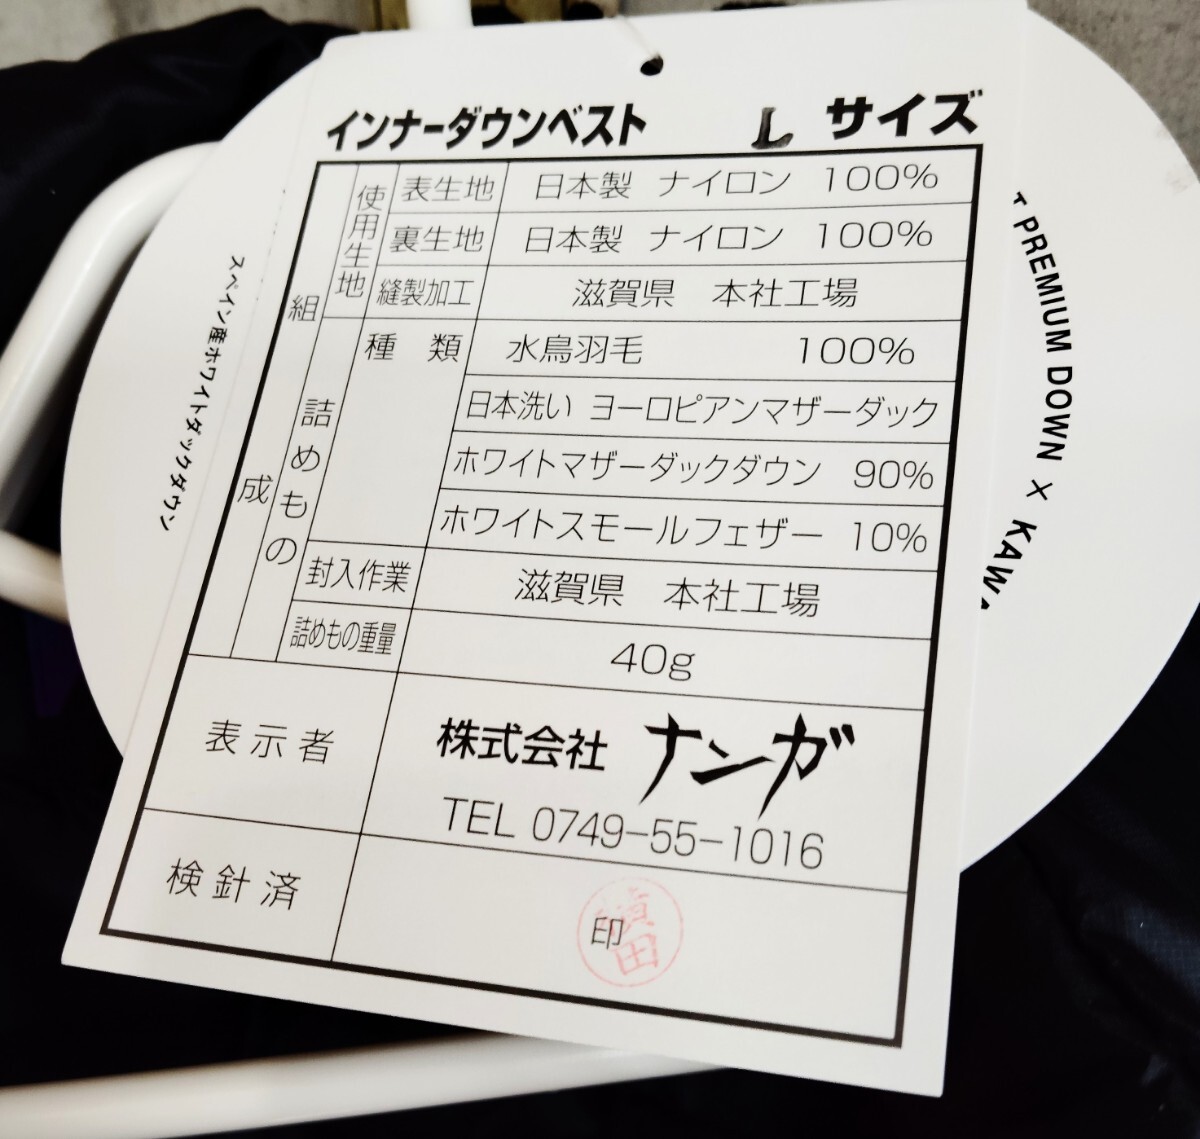 インナーダウンベスト L サイズ
組成
使用生地
表生地 日本製 ナイロン 100%
裏生地 日本製 ナイロン 100%
縫製加工 滋賀県 本社工場
詰めもの
種類 水鳥羽毛 100%
日本洗い ヨーロピアンマザーダック
ホワイトマザーダックダウン 90%
ホワイトスモールフェザー 10%
封入作業 滋賀県 本社工場
詰めもの重量 40g
表示者 株式会社 ナンガ
TEL 0749-55-1016
検針済 印
スペイン産ホワイトダックダウン
PREMIUM DOWN × KAW